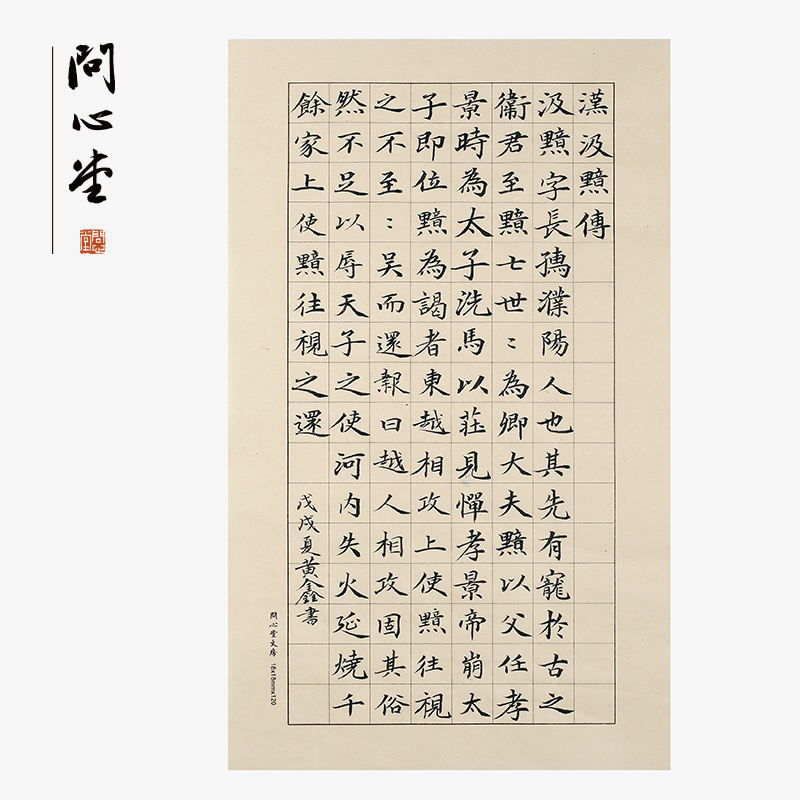 問心堂
問心堂
漢汲黯傳
汲黯字長孺濮陽人也其先有寵於古之
衛君至黯七世〻為卿大夫黯以父任孝
景時為太子洗馬以莊見憚孝景帝崩太
子即位黯為謁者東越相攻上使黯往視
之不至〻吳而還報曰越人相攻固其俗
然不足以辱天子之使河内失火延燒千
餘家上使黯往視之還
戊戌夏黃鑫書
問心堂文房 18x18mmx120